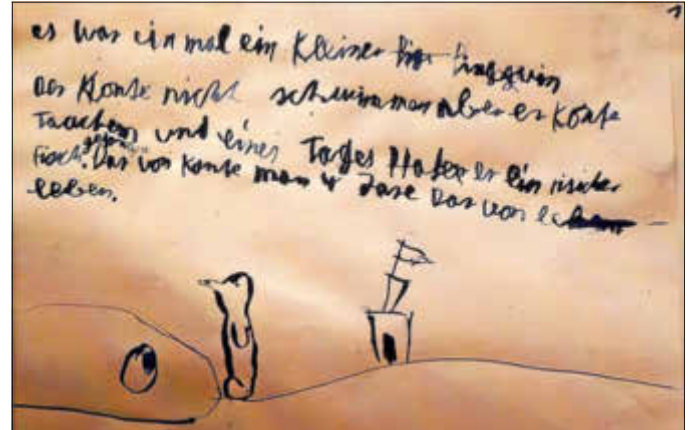 1
es war ein mal ein Kleiner Pingguin
der Konte nicht schwimmen aber er Konte
Tauchen und eines Tages Hater er ein risicher
Fisch gefangen. Das von Konte man 4 Jare Das von
leben.